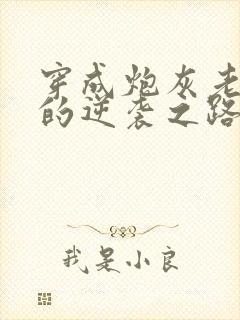 穿成炮灰老
的逆袭之路
我是小良